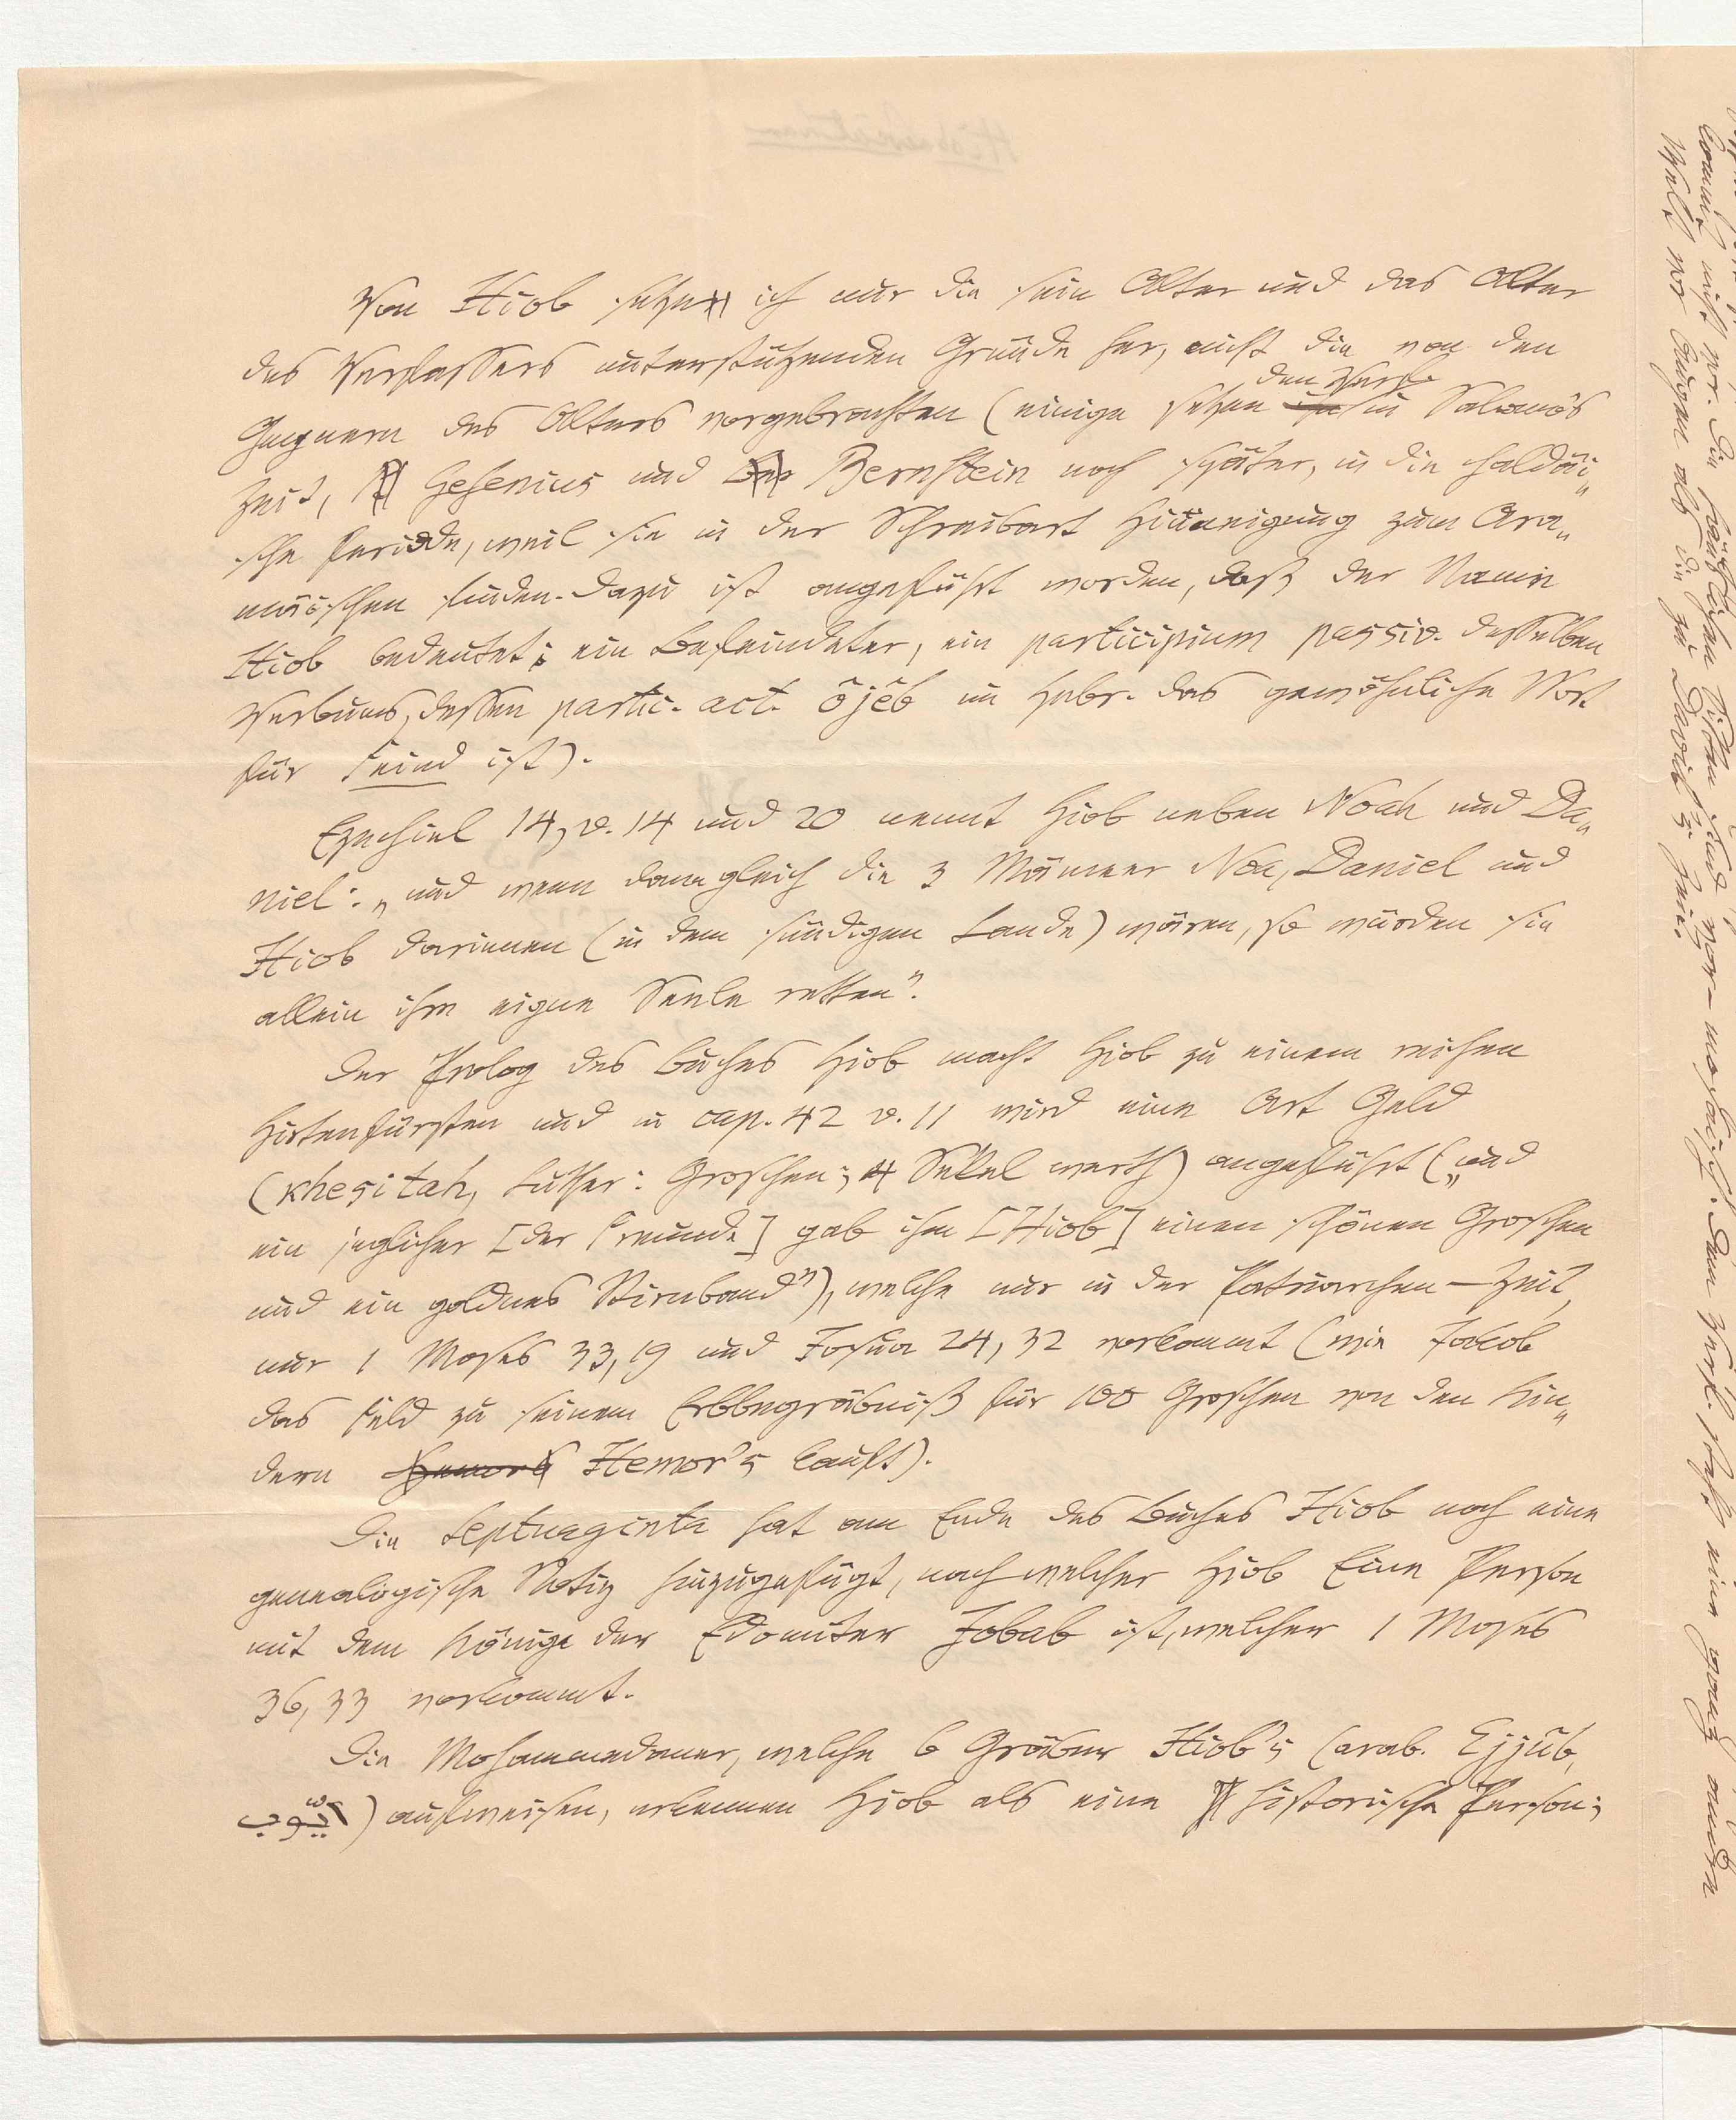 Von Hiob setze ich nur die sein Alter und das Alter
des Verfassers unterstützenden Gründe her, nicht die von den
Gegnern des Alters vorgebrachten (einige setzen den Verf. in Salomo's
Zeit, Gesenius und Bernstein noch später, in die chaldäi„
sche Periode, weil sie in der Schreibart Hinneigung zum Ara„
mäischen finden. Dazu ist angeführt worden, daß der Name
Hiob bedeutet: ein Befeindeter, ein participium passiv. desselben
Verbums, dessen partic. act. ôjêb im Hebr. das gewöhnliche Wort
für Feind ist).
Ezechiel 14, v. 14 und 20 nennt Hiob neben Noah und Da„
niel: „und wenn dann gleich die 3 Männer Noa, Daniel und
Hiob darinnen (in dem sündigen Lande) wären, so würden sie
allein ihre eigne Seele retten".
Der Prolog des Buches Hiob macht Hiob zu einem reichen
Hirtenfürsten und in cap. 42 v. 11 wird eine Art Geld
(Khesitah, Luther: Groschen; 4 Sekel werth) angeführt („und
ein jeglicher [der Freunde] gab ihm [Hiob] einen schönen Groschen
und ein goldnes Stirnband"), welche nur in der Patriarchen-Zeit,
nur 1 Moses 33,19 und Josua 24,32 vorkommt (wie Jakob
das Feld zu seinem Erbbegräbniß für 100 Groschen von den Kin„
dern Hemor's kauft).
Die Septuaginta hat am Ende des Buches Hiob noch eine
genealogische Notiz hinzugefügt, nach welcher Hiob Eine Person
mit dem Könige der Edomiter Jobab ist, welcher 1 Moses
36,33 vorkommt.
Die Mohammedaner, welche 6 Gräber Hiob's (arab. Ejjûb,
أيّوب) aufweisen, erkennen Hiob als eine historische Person;
kommt nicht vor. Die häuslichen Sitten sind vor-mosaisch. Dem Verf. steht eine ganz andre
Welt vor Augen als die zu David's Zeit.